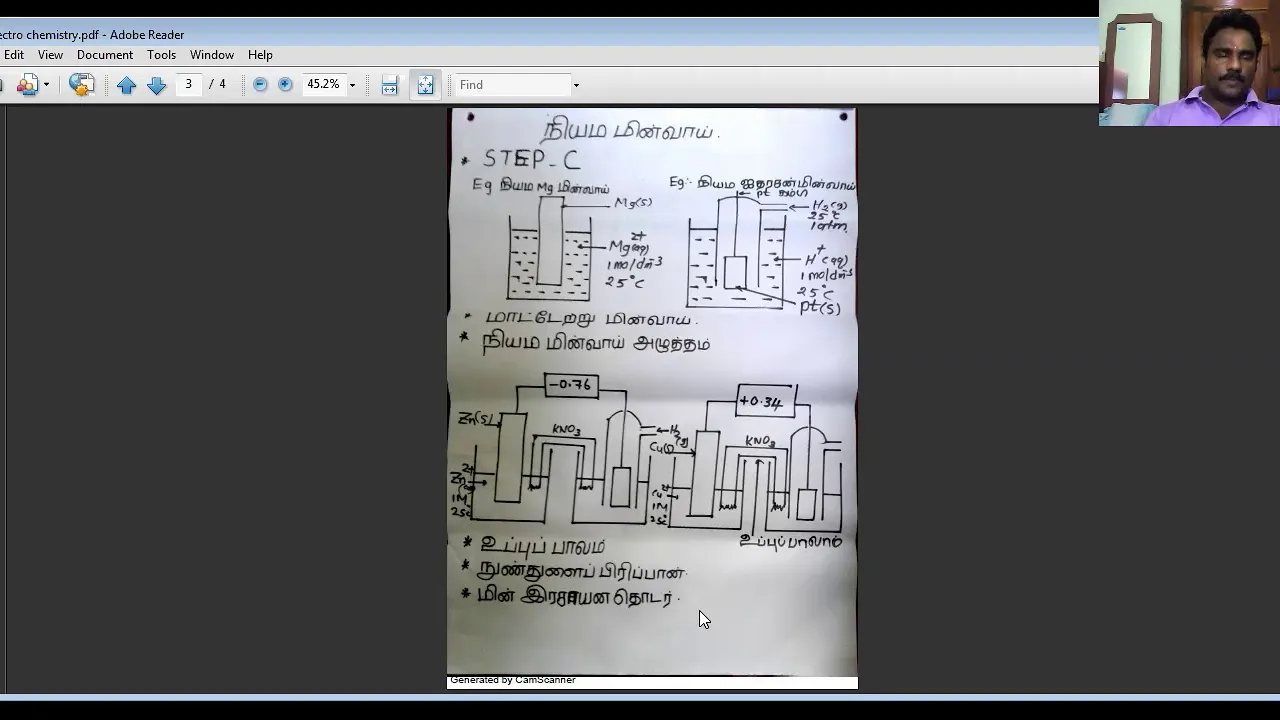 ectro chemistry.pdf - Adobe Reader
Edit View Document Tools Window Help
3 / 4 45.2% Find
நியம மின்வாய்.
* STEP-C
Eg நியம Mg மின்வாய்
Mg(s)
Mg2+(aq)
1mol/dm-3
25°C
Eg:- நியம ஐதரசன் மின்வாய்
pt கம்பி
H2(g)
25°C
1atm
H+(aq)
1mol/dm-3
25°C
pt(s)
* மாட்டேற்று மின்வாய்.
* நியம மின்வாய் அழுத்தம்
-0.76
Zn(s)
KNO3
H2(g)
Zn2+
1M
25°C
+0.34
Cu(s)
KNO3
Cu2+
1M
25°C
உப்புப்பாலாம்
* உப்புப் பாலம்
* நுண்துளைப் பிரிப்பான்.
* மின் இரசாயன தொடர்.
Generated by CamScanner